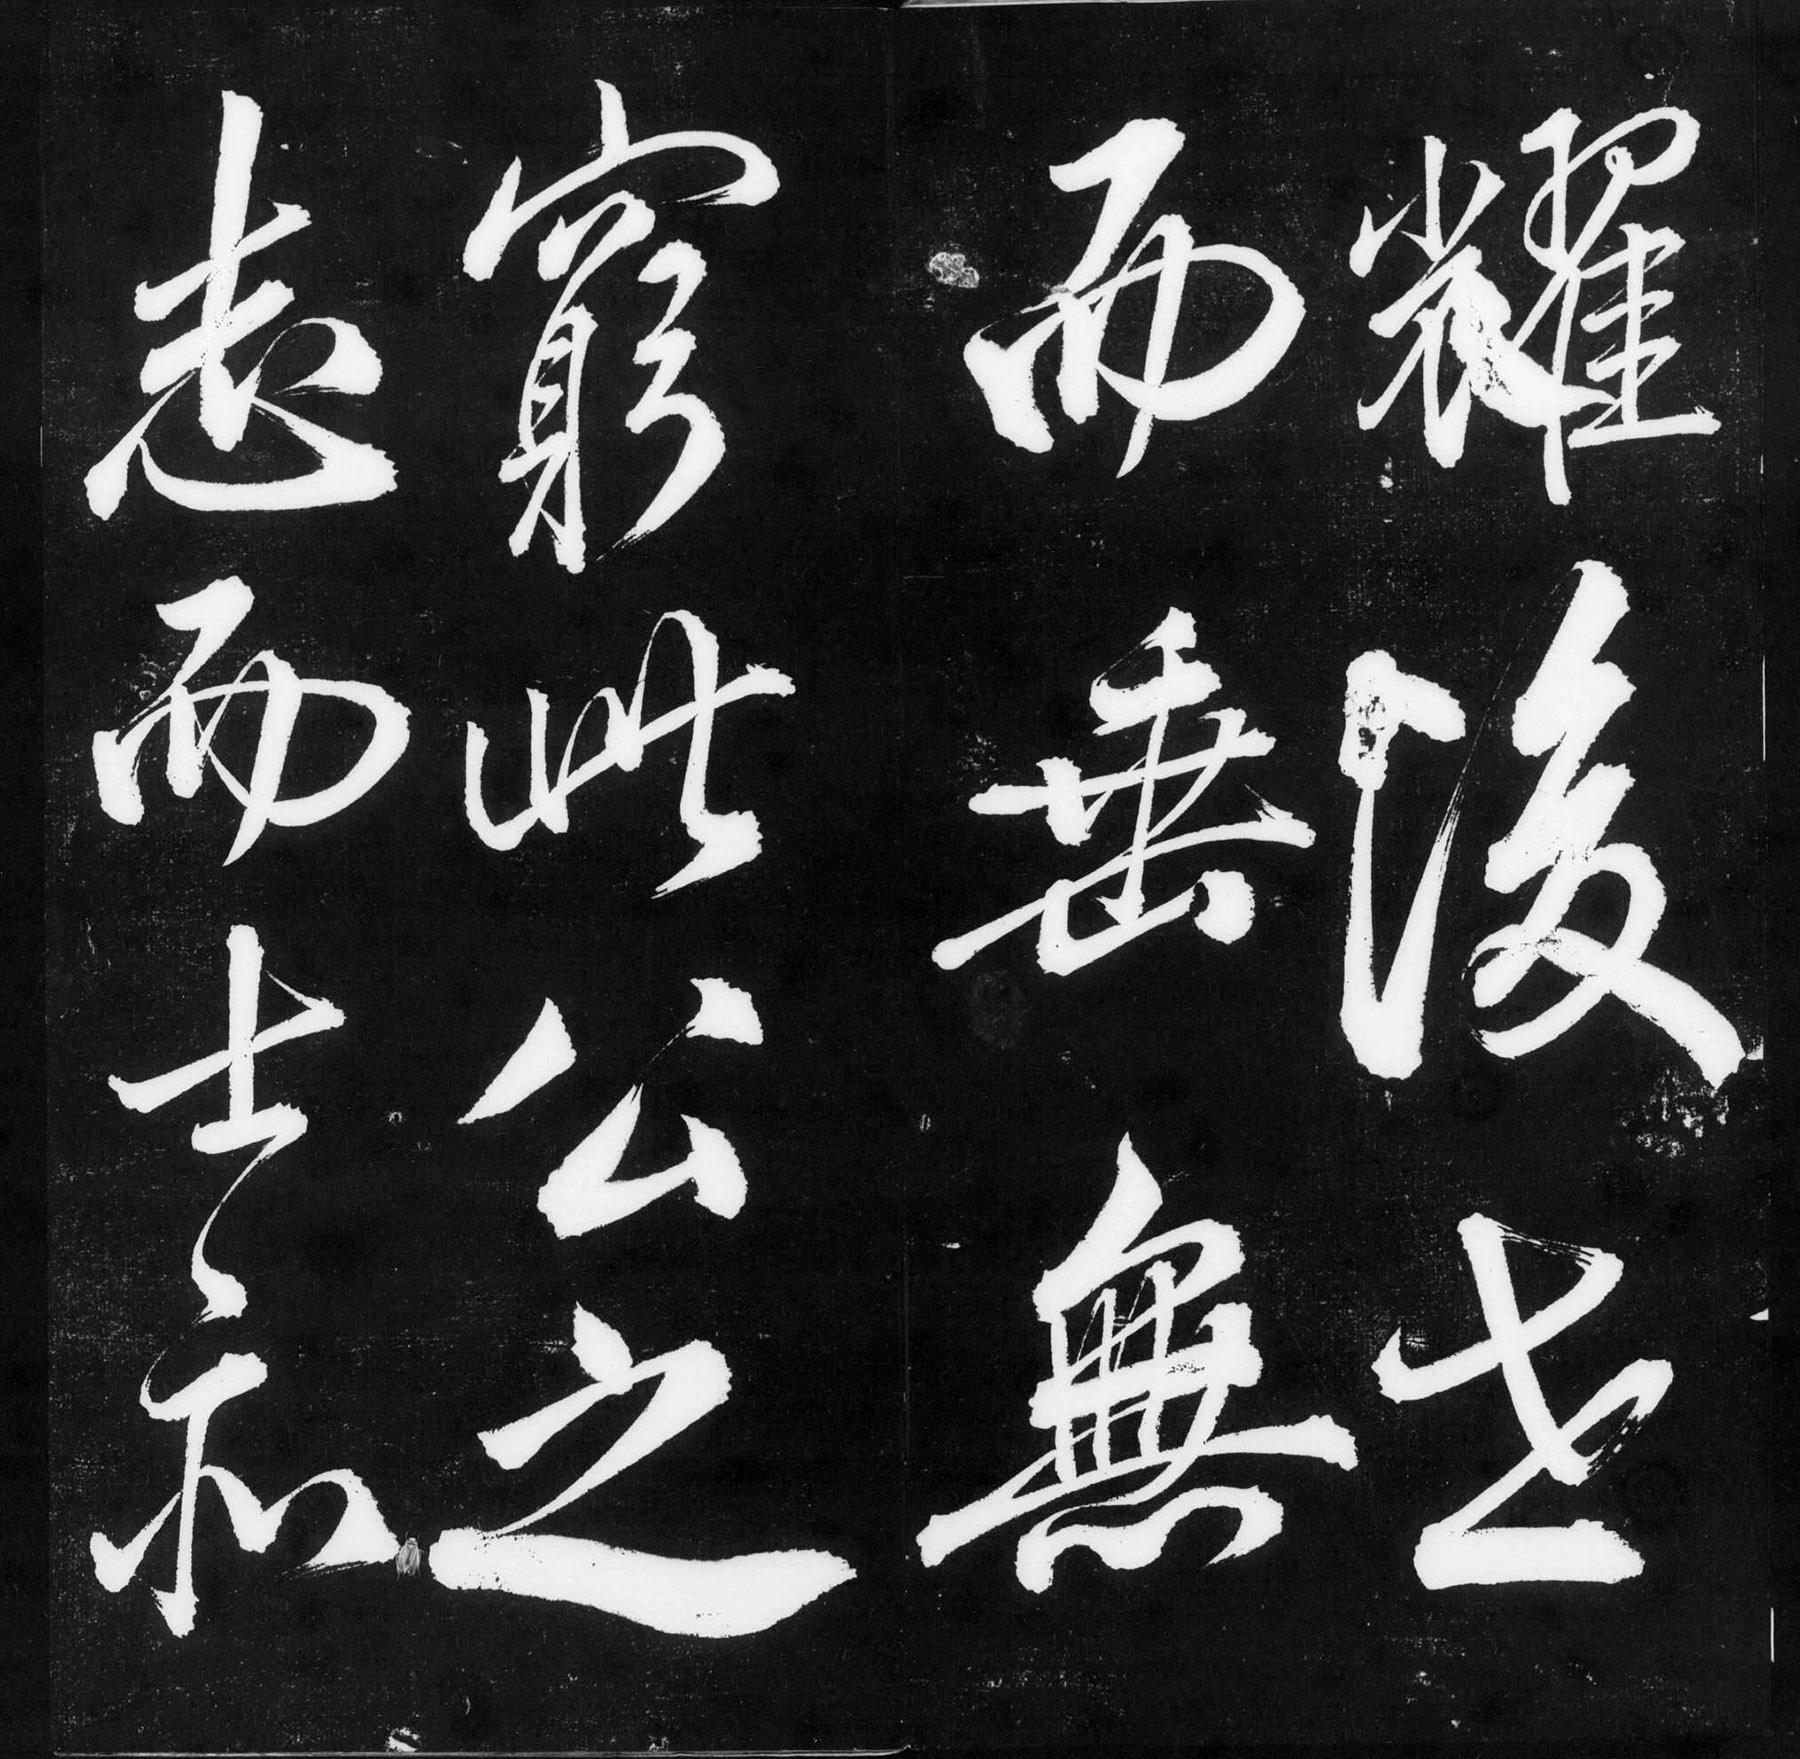 耀後世
而垂無
窮此公之
志而士亦